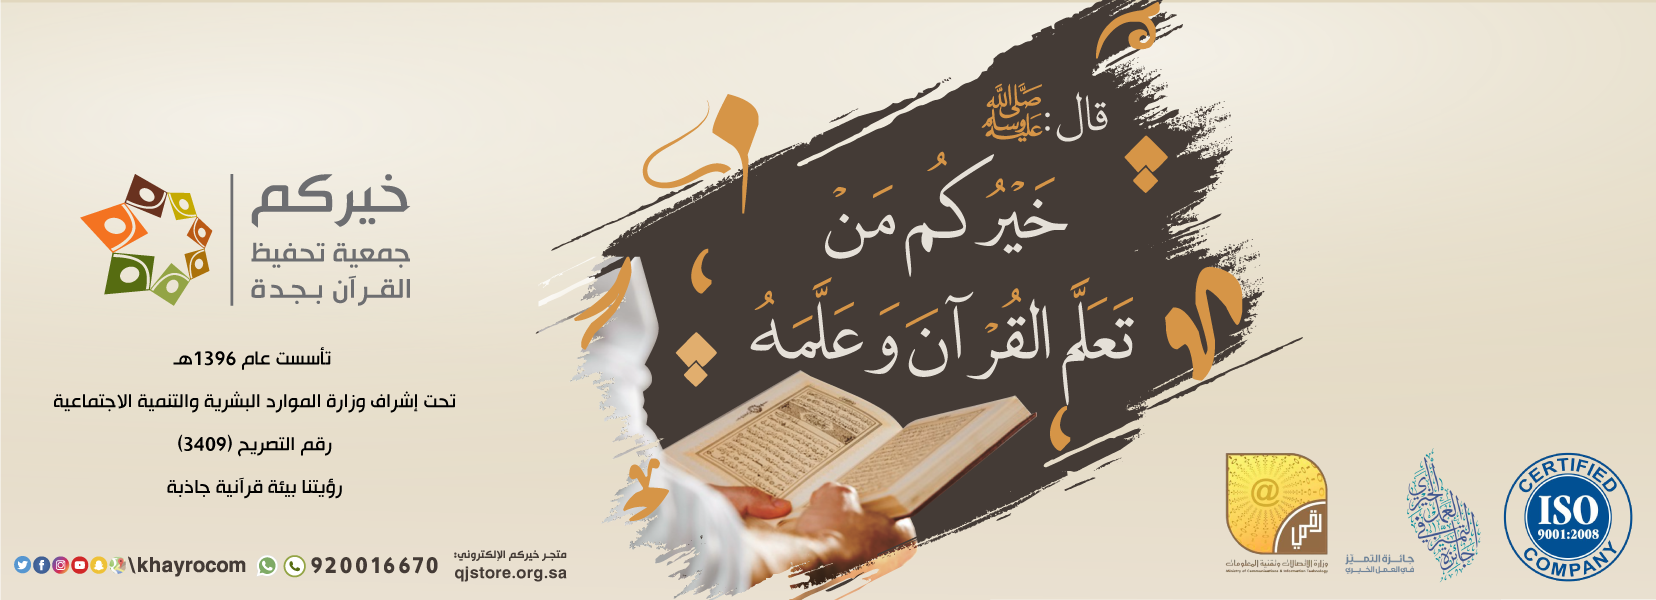 قال: ﷺ
خَيْرُكُم مَنْ
تَعَلَّم القُرْآنَ وَعَلَّمَهُ
خيركم
جمعية تحفيظ
القرآن بجدة
تأسست عام 1396هـ
تحت إشراف وزارة الموارد البشرية والتنمية الاجتماعية
رقم التصريح (3409)
رؤيتنا بيئة قرآنية جاذبة
\khayrocom
920016670
متجر خيركم الإلكتروني:
qjstore.org.sa
@
رقمي
وزارة الإتصالات وتقنية المعلومات
Ministry of Communications & Information Technology
جائزة التميز
في العمل الخيري
CERTIFIED
ISO
9001:2008
COMPANY